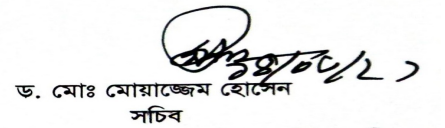 ড. মোঃ মোয়াজ্জেম হোসেন
সচিব